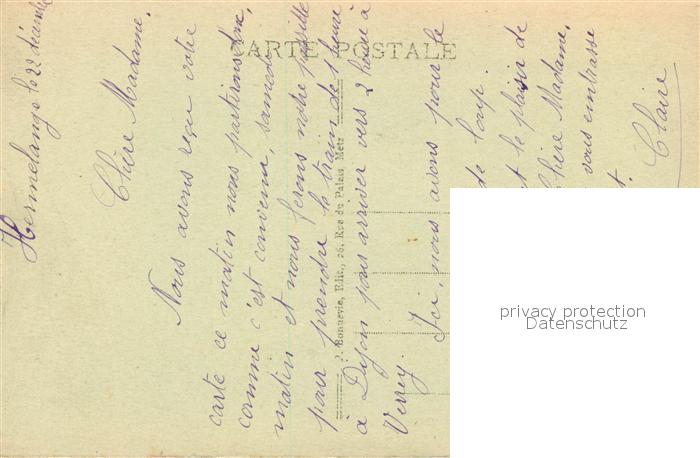 CARTE POSTALE
J. Bonnevie, Edit., 26, Rue du Palais, Metz
Hermelange le 22 décembre
Chère Madame.
Nous avons reçu votre
carte ce matin nous partirons donc,
comme c'est convenu, samedi
matin et nous ferons notre possible
pour prendre le train de 1 heure
à Dijon pour arriver vers 2 heure à
Verrey.
Ici, nous avons pour le
de loup.
t le plaisir de
Chère Madame,
vous embrasse
t.
Claire
privacy protection
Datenschutz